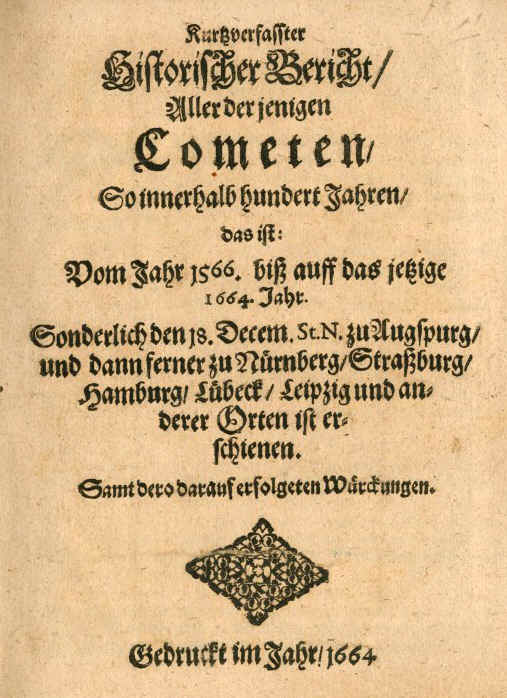 Kurtzverfasster
Historischer Bericht/
Aller der jenigen
Cometen/
So innerhalb hundert Jahren/
das ist:
Vom Jahr 1566. biß auff das jetzige
1664. Jahr.
Sonderlich den 18. Decem. St. N. zu Augspurg/
und dann ferner zu Nürnberg/ Straßburg/
Hamburg/ Lübeck/ Leipzig und an-
derer Orten ist er-
schienen.
Samt dero darauf erfolgeten Würckungen.
Gedruckt im Jahr/ 1664